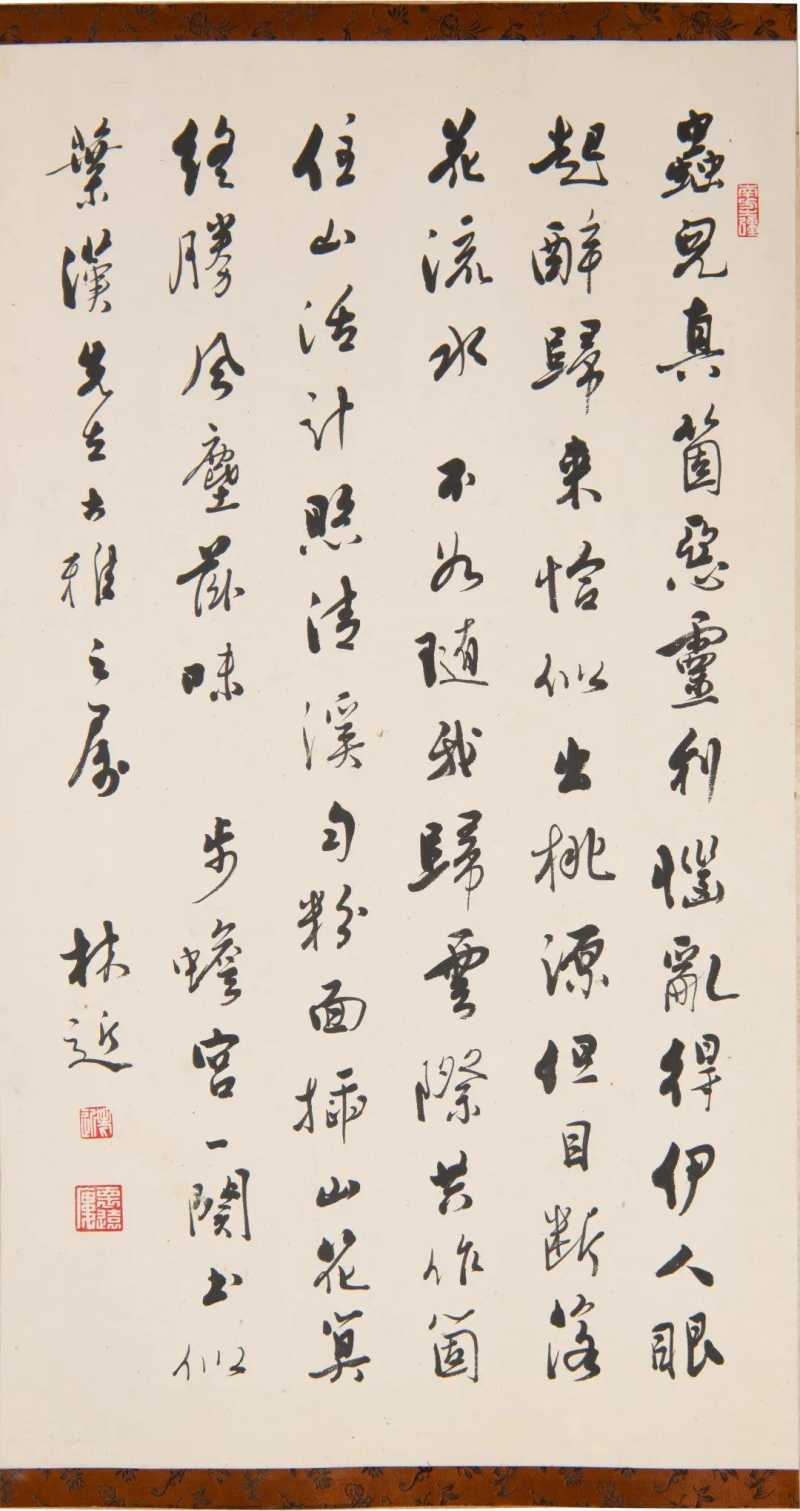 蟲兒真箇惡靈利惱亂得伊人眼
起醉歸來恰似出桃源但目斷落
花流水 不如隨我歸雲際共作箇
住山活計照清溪勻粉面插山花算
終勝風塵滋味 步蟾宮一闋書似
葉漢先生大雅之屬 林近